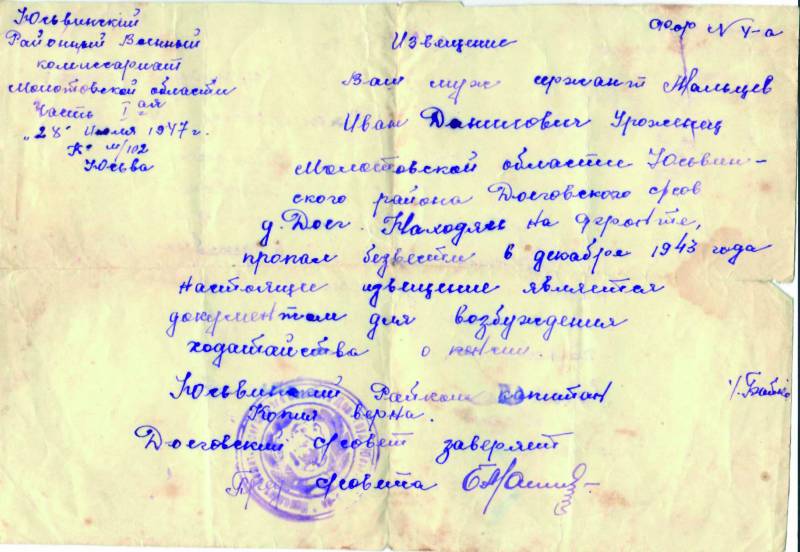 Юсьвинский
Районный Военный
комиссариат
Молотовской области
Часть I ая
"28" Июля 1947 г.
№ м/102
Юсьва
Фор N 4-а
Извещение
Ваш муж сержант Мальцев
Иван Данилович Уроженец
Молотовской области Юсьвин-
ского района Доеговского с/сов
д. Доег. Находясь на фронте,
пропал безвести в декабря 1943 года
настоящие извещение является
документом для возбуждения
ходатайства о
Юсьвинский Райком капитан
Копия верна.
Доеговский с/совет заверяет
Пред с/совета